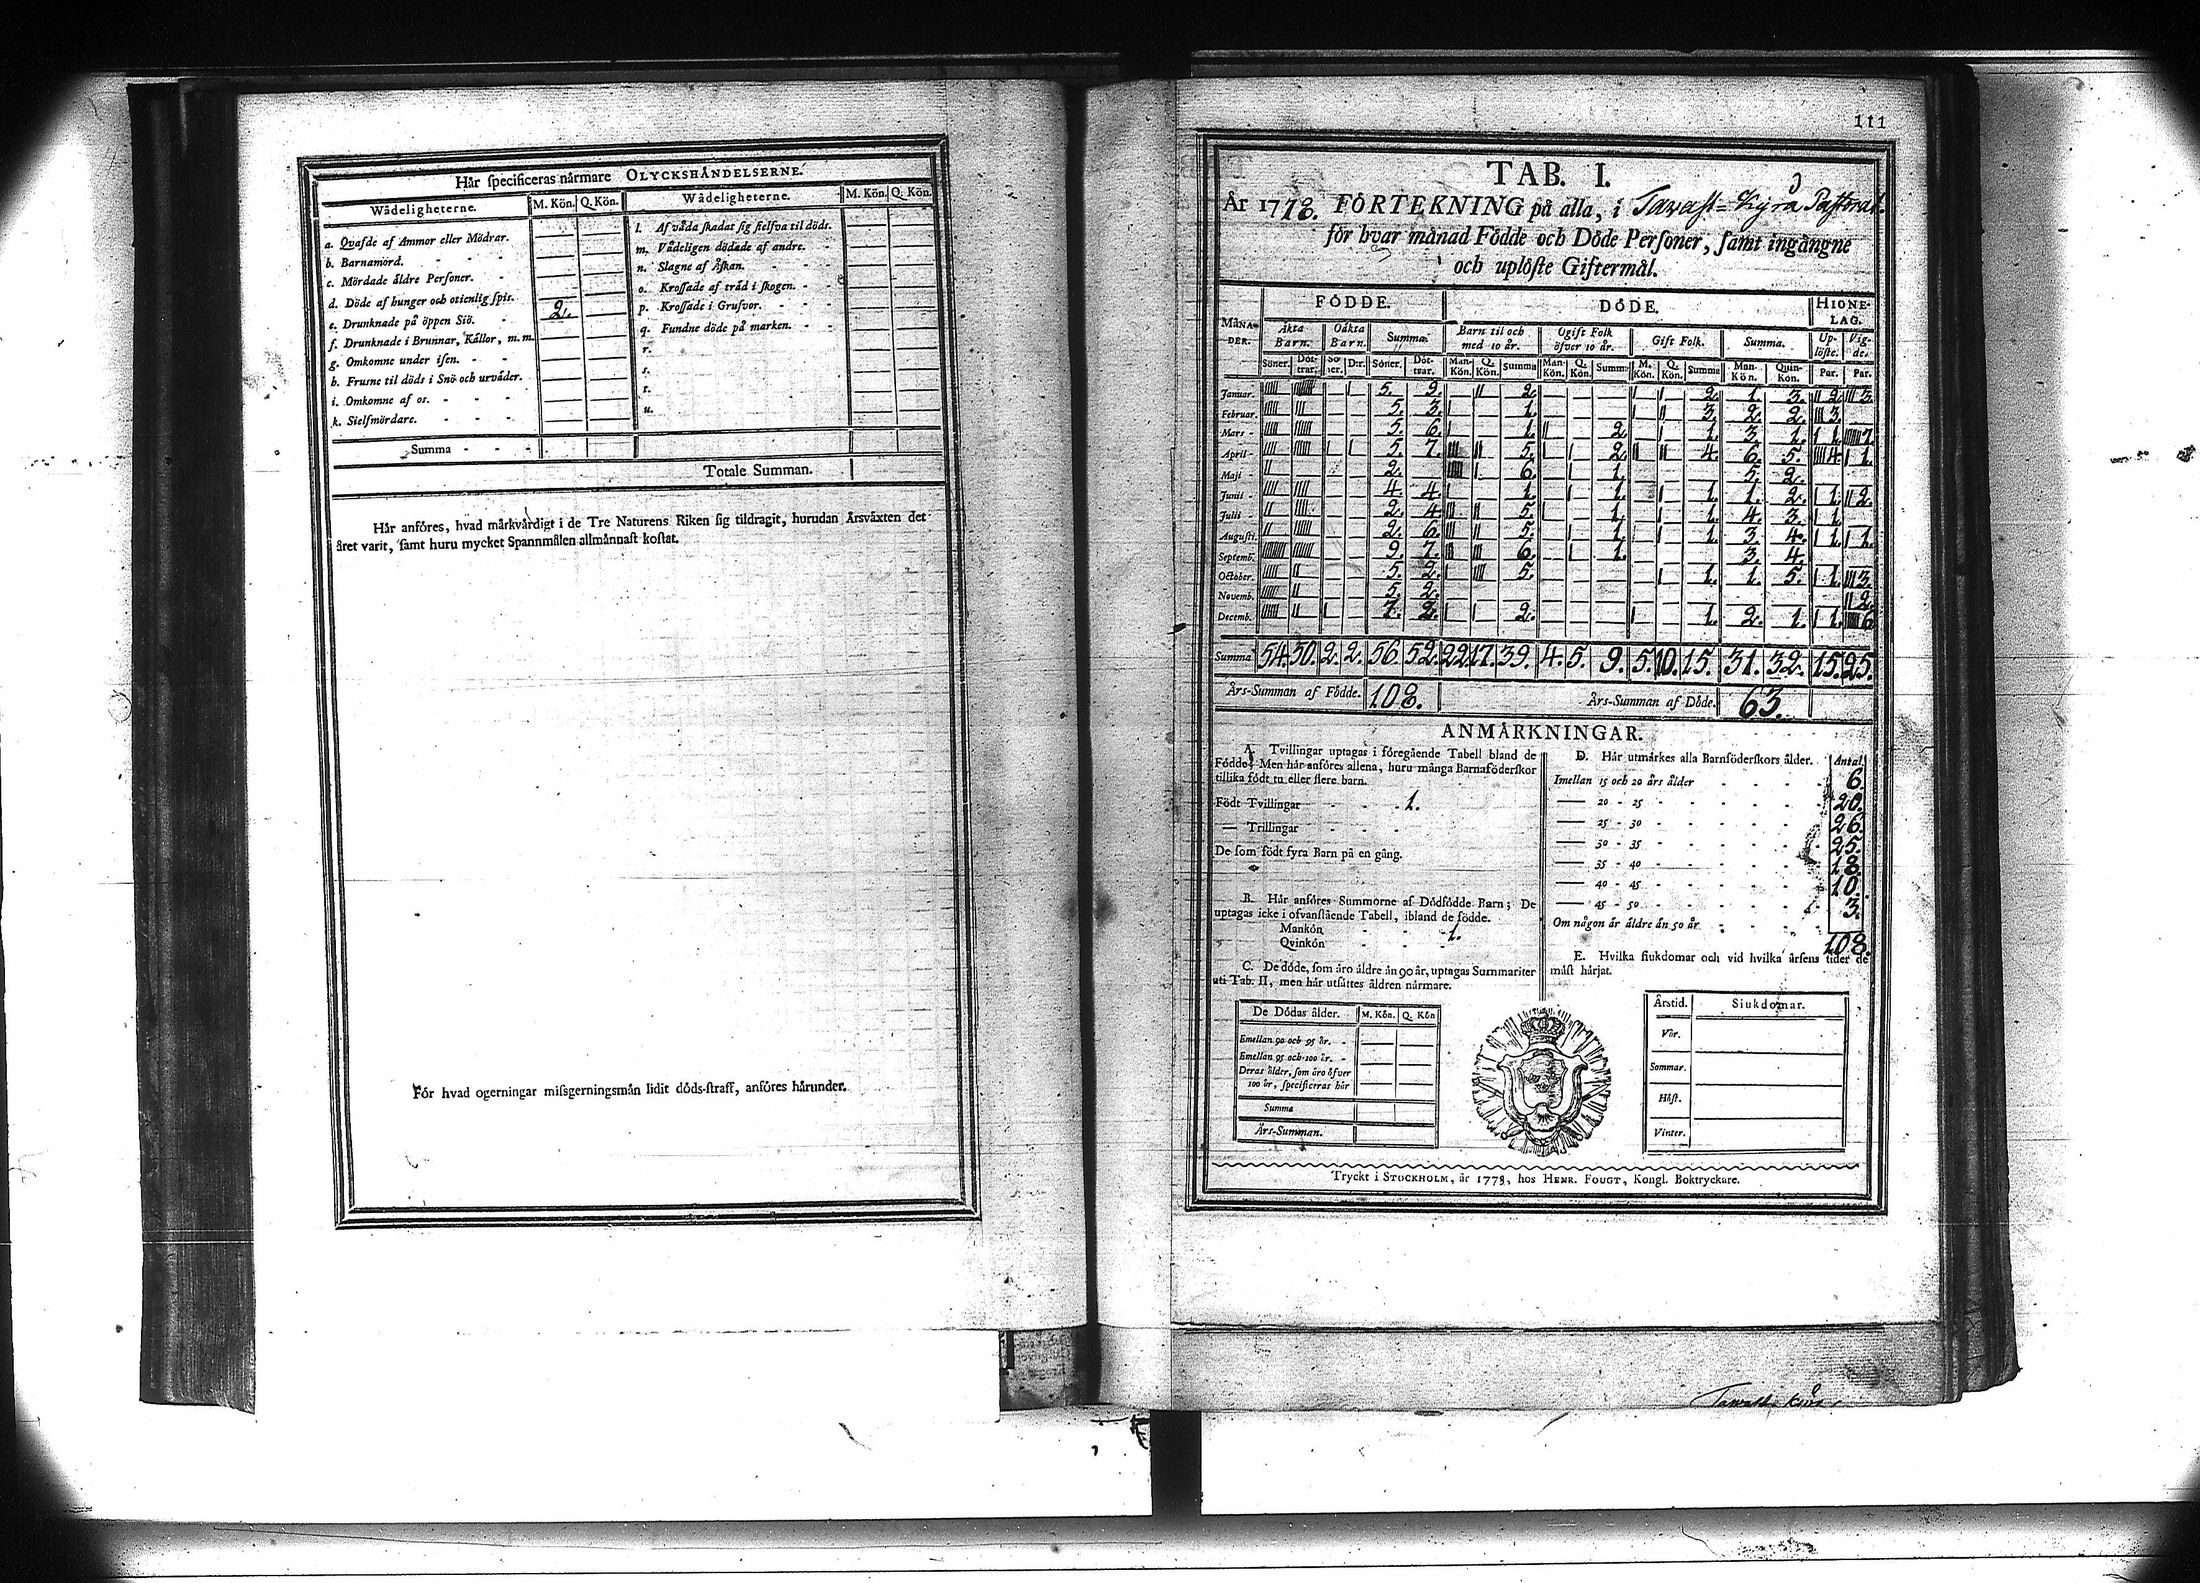 Här specificeras närmare OLYCKSHÄNDELSERNE.
Wådeligheterne. M. Kön. Q. Kön. Wådeligheterne. M. Kön. Q. Kön.
a. Qvafde af Ammor eller Mödrar. — —
b. Barnamord. — —
c. Mördade äldre Personer. — —
d. Döde af hunger och otienlig spis. — —
e. Drunknade på öppen Siö. 2. —
f. Drunknade i Brunnar, Källor, m. m. — —
g. Omkomne under isen. — —
h. Frusne til döds i Snö och urväder. — —
i. Omkomne af os. — —
k. Sielfmördare. — —
l. Af våda skadat sig sielfva til döds. — —
m. Vådeligen dödade af andre. — —
n. Slagne af Åskan. — —
o. Krossade af träd i skogen. — —
p. Krossade i Grufvor. — —
q. Fundne döde på marken. — —
r. — —
s. — —
t. — —
u. — —
Summa
Totale Summan.
Här anföres, hvad märkvärdigt i de Tre Naturens Riken sig tildragit, hurudan Årsväxten det
året varit, samt huru mycket Spannmålen allmännast kostat.
För hvad ogerningar missgerningsmän lidit döds-straff, anföres härunder.
111
TAB. I.
År 1778. FÖRTEKNING på alla, i Tavast-Kyrå Pastorat.
för hvar månad Födde och Döde Personer, samt ingångne
och uplöste Giftermål.
FÖDDE. DÖDE. HIONE-
LAG.
MÅNA-
DER. Äkta
Barn. Oäkta
Barn. Summa. Barn til och
med 10 år. Ogift Folk
öfver 10 år. Gift Folk. Summa. Up-
löste. Vig-
de.
Söner. Döt-
trar. Sö-
ner. Dr. Söner. Döt-
trar. Man-
Kön. Q.
Kön. Summa Man-
Kön. Q.
Kön. Summa M.
Kön. Q.
Kön. Summa Man-
Kön. Quin-
Kön. Par. Par.
Januar. 5. 9. 2. 2. 1. 3. 2. 3.
Februar. 5. 3. 1. 3. 2. 2. 3.
Mars 5. 6. 1. 2. 1. 3. 1. 1. 7.
April 5. 7. 5. 2. 4. 6. 5. 4. 1.
Maji 2. 6. 1. 5. 2.
Junii 4. 4. 1. 1. 1. 1. 2. 1. 2.
Julii 2. 4. 5. 1. 1. 4. 3. 1.
Augusti. 2. 6. 5. 1. 1. 3. 4. 1. 1.
Septemb. 9. 7. 6. 1. 3. 4.
October. 5. 2. 5. 1. 1. 5. 1. 3.
Novemb. 5. 2. 2.
Decemb. 7. 2. 2. 1. 2. 1. 1. 6
Summa 54. 50. 2. 2. 56. 52. 22. 17. 39. 4. 5. 9. 5. 10. 15. 31. 32. 15. 25.
Års-Summan af Födde. 108. Års-Summan af Döde. 63.
ANMÄRKNINGAR.
A. Tvillingar uptagas i föregående Tabell bland de
Födde; Men här anföres allena, huru många Barnaföderskor
tillika födt tu eller flere barn.
Födt Tvillingar - - - 1.
— Trillingar - - -
De som födt fyra Barn på en gång.
B. Här anföres Summorne af Dödfödde Barn; De
uptagas icke i ofvanstående Tabell, ibland de födde.
Mankön - - 1.
Qvinkön - -
C. De döde, som äro äldre än 90 år, uptagas Summariter
uti Tab. II, men här utsättes åldren närmare.
De Dödas ålder. M. Kön. Q. Kön
Emellan 90 och 95 år. - — —
Emellan 95 och 100 år. - — —
Deras ålder, som äro öfver
100 år, specificeras här — —
Summa
Års-Summan.
D. Här utmärkes alla Barnföderskors ålder. Antal
Imellan 15 och 20 års ålder 6.
— 20 - 25 20.
— 25 - 30 26.
— 30 - 35 25.
— 35 - 40 18.
— 40 - 45 10.
— 45 - 50 3.
Om någon är äldre än 50 år
108.
E. Hvilka siukdomar och vid hvilka årsens tider de
mäst härjat.
Årstid. Siukdomar.
Vår.
Sommar.
Höst.
Vinter.
Tryckt i STOCKHOLM, år 1773, hos HENR. FOUGT, Kongl. Boktryckare.